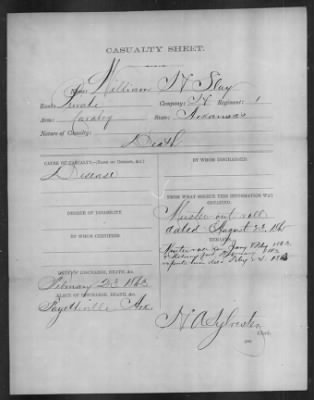 CASUALTY SHEET.
Name: William H Slay
Rank: Private Company: H Regiment: 1
Arm: Cavalry State: Arkansas
Nature of Casualty:
Death
CAUSE OF CASUALTY—(NAME OF DISEASE, &C.)
Disease
BY WHOM DISCHARGED.
FROM WHAT SOURCE THIS INFORMATION WAS OBTAINED.
Muster out roll
dated August 23, 186
DEGREE OF DISABILITY.
REMARKS.
BY WHOM CERTIFIED.
DATE OF DISCHARGE, DEATH, &C.
February 23 1863
PLACE OF DISCHARGE, DEATH, &C.
Fayetteville Ark
H A Sylvester
Clerk.